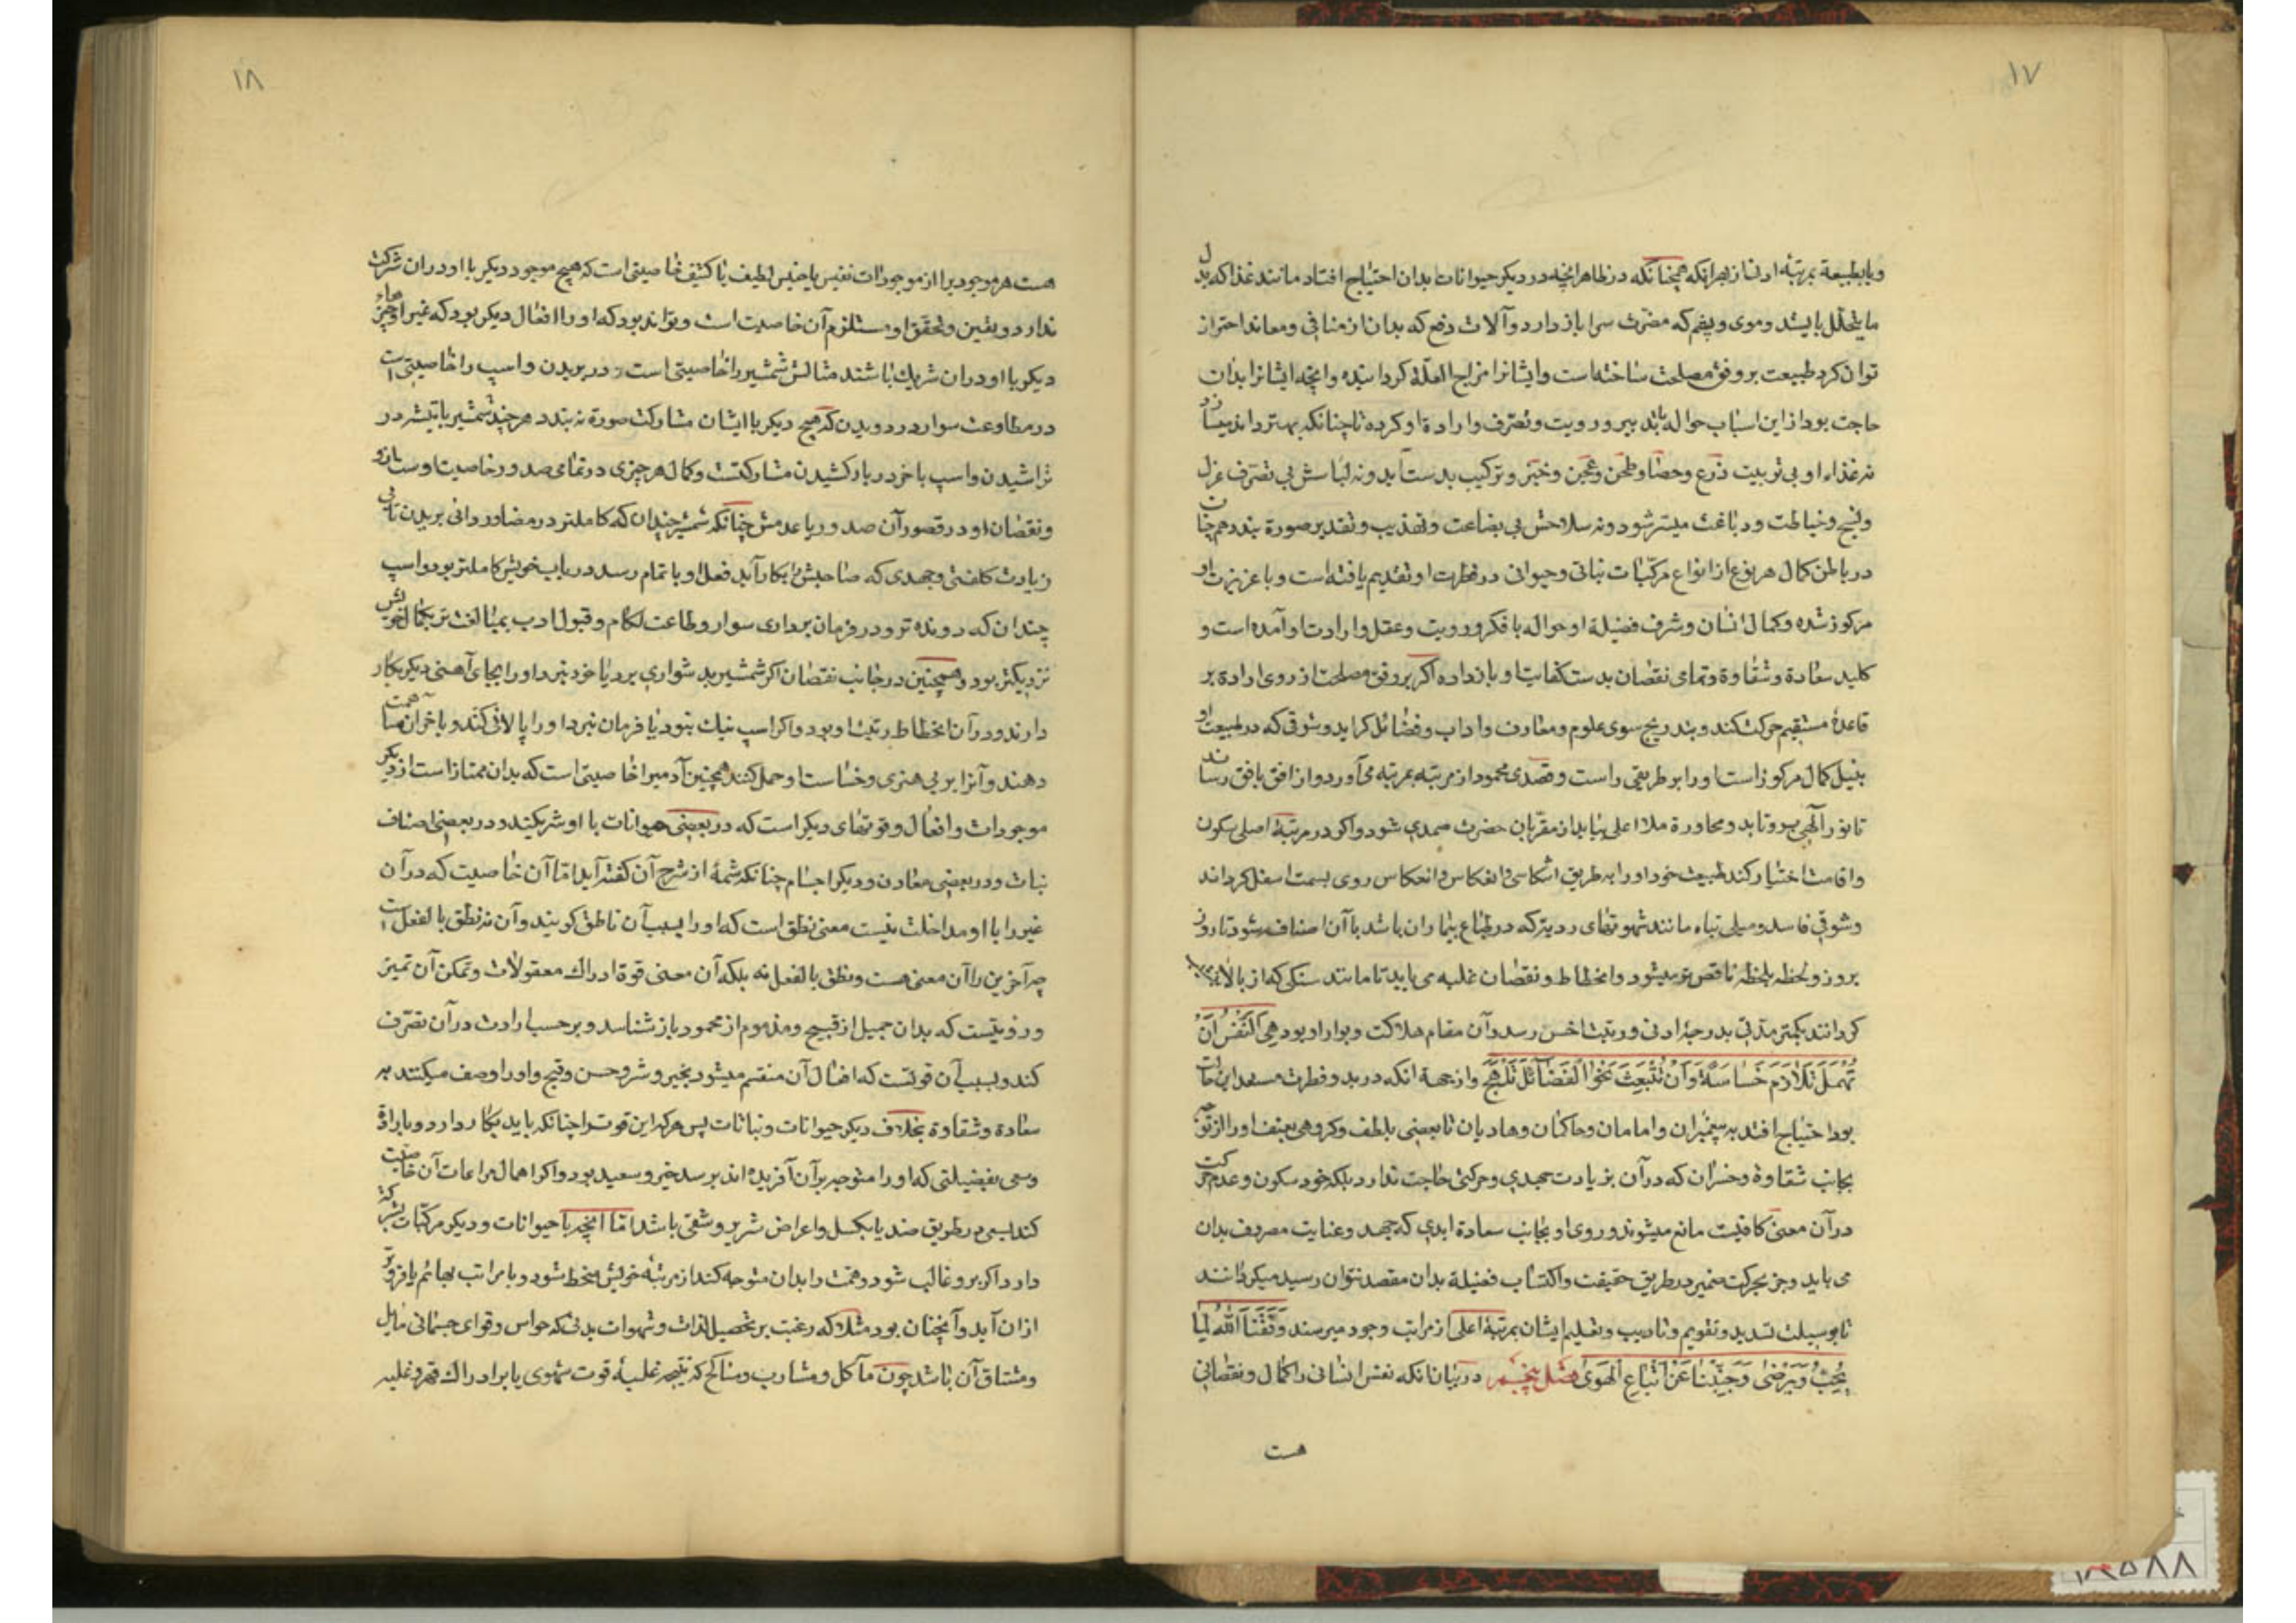 ۱۷
و یا بطبیعة بمرتبهٔ ادنا از بهر آنکه همچنانکه در ظاهر آنچه در دیکر حیوانات بدان احتیاج افتاد مانند غذا که بدل
ما یتحلل بایستد و موی و پشم که مضرت سرما باز دارد و آلات دفع که بدان از منافی و معاند احتراز
توان کرد طبیعت بر وفق مصلحت ساخته است و ایشانرا مزاح العلّة کردانیده و آنچه ایشانرا بدان
حاجت بود از این اسباب حواله بتدبیر و رویت و تصرف و ارادة او کرده تا چنانکه بهتر داند میسازد
نه غذاء او بی تربیت زرع و حصاد و طحن و عجن و خبز و ترکیب بدست آید و نه لباسش بی تصرف غزل
و نسج و خیاطت و دباغت میسر شود و نه سلاحش بی بضاعت و تهذیب و تقدیر صورة بندد همچنان
در باطن کمال هر نوع از انواع مرکبات نباتی و حیوانی در فطرت او تقدیم یافته است و با غریزت او
مرکوز شده و کمال انسان و شرف فضیلة او حواله با فکر و رویت و عقل و ارادت او آمده است و
کلید سعادة و شقاوة و تمامی نقصان بدست کفایت او باز داده اکر بر وفق مصلحت از روی ارادة بر
قاعدهٔ مستقیم حرکت کند و بتدریج سوی علوم و معارف و اداب و فضائل کراید و شوقی که در طبیعت او
بنیل کمال مرکوز است او را بر طریقی راست و قصدی محمود از مرتبه بمرتبه می آورد و از افق بافق رساند
تا نور آلهی برو تابد و مجاورة ملا اعلی بیابد از مقرّبان حضرت صمدی شود و اکر در مرتبهٔ اصلی سکون
و اقامت اختیار کند طبیعت خود او را به طریق انتکاس و انعکاس روی بسمت اسفل کرداند
و شوقی فاسد و میلی تباه مانند شهوتهای ردیه که در طباع بیماران باشد با آن اضافت شود تا روز
بروز و لحظه بلحظه ناقص تر میشود و انحطاط و نقصان غلبه می یابد تا مانند سنکی که از بالا بزیر
کردانند بکمتر مدتی بدرجهٔ ادنی و رتبت اخس رسد و آن مقام هلاکت و بوار او بود هِیَ النَّفْسُ اَنْ
تُهْمَلْ تَلازَمْ خَسَاسَةً وَاَنْ تُنْبَعِثْ نَحْوَ الْفَضَائِلِ تَلْهَجِ و از جهة انکه در بدو فطرت مستعد این حالت
بود احتیاج افتد به پیغمبران و امامان و حاکمان و هادیان تا بعضی بلطف و کروهی بعنف او را از توجه
بجانب شقاوة و خسران که در آن بزیادت جهدی و حرکتی حاجت ندارد بلکه خود سکون و عدم حرکت
در آن معنی کافیست مانع میشوند و روی او بجانب سعادة ابدی که جهد و عنایت مصروف بدان
می باید و جز بحرکت ضمیر در طریق حقیقت و اکتساب فضیلة بدان مقصد نتوان رسید میکردانند
تا بوسیلت تسدید و تقویم و تادیب و تعلیم ایشان بمرتبهٔ اعلی از مراتب وجود میرسند وَفَّقَنَا اللّٰهُ لِمَا
یُحِبُّ وَیَرْضٰی وَجَنِّبْنَا عَنْ اتِّبَاعِ الْهَوَی فصل پنجم در بیان انکه نفس انسانی را کمال و نقصانی
هست
۱۸
هست هر موجودیرا از موجودات نفیس یا خسیس لطیف یا کثیف خاصیتی است که هیچ موجود دیکر با او در ان شرکت
ندارد و تعین و تحقق او مستلزم آن خاصیت است و تواند بود که او را افعال دیکر بود که غیر او چیزهاء
دیکر با او در ان شریک باشند مثالش شمشیر را خاصیتی است در بریدن و اسپ را خاصیتی است
در مطاوعت سوار در دویدن که هیچ دیکر با ایشان مشارکت صورة نبندد هر چند شمشیر با تیشه در
تراشیدن و اسپ با خر در بار کشیدن مشارکتست و کمال هر چیزی در تمامی صدور خاصیت اوست ازو
و نقصان او در قصور آن صدور یا عدمش چنانکه شمشیر چندان که کاملتر در مضا و روانی بریدن تا بی
زیادت کلفتی و جهدی که صاحبش را بکار آید فعل او باتمام رسد در باب خویش کاملتر بود و اسپ
چندان که دونده تر و در فرمان برداری سوار و طاعت لکام و قبول ادب بمبالغت تر بکمال خویش
نزدیکتر بود و همچنین در جانب نقصان اکر شمشیر بدشواری برد یا خود نبرد او را بجای آهنی دیکر بکار
دارند و در آن انحطاط رتبت او بود و اکر اسپ نیک نبود یا فرمان نبرد او را پالانی کند و با خران مساهمت
دهند و آنرا بر بی هنری و خساست او حمل کنند همچنین آدمیرا خاصیتی است که بدان ممتاز است از دیکر
موجودات و افعال و قوتهای دیکر است که در بعضی حیوانات با او شریکند و در بعضی اصناف
نبات و در بعضی معادن و دیکر اجسام چنانکه شمهٔ از شرح آن کفته آید امّا آن خاصیت که در آن
غیر را با او مداخلت نیست معنی نطق است که او را بسبب آن ناطق کویند و آن نه نطق بالفعل است
چه آخرین را آن معنی هست و نطق بالفعل نه بلکه آن معنی قوة ادراک معقولات و تمکن آن تمیز
و رویتست که بدان جمیل از قبیح و مذموم از محمود باز شناسد و بر حسب ارادت در آن تصرف
کند و بسبب آن قوتست که افعال آن منقسم میشود بخیر و شر و حسن و قبح و او را وصف میکنند به
سعادة و شقاوة بخلاف دیکر حیوانات و نباتات پس هرکه این قوت را چنانکه باید بکار دارد و باراد‌ة
و سعی بفضیلتی که او را متوجه بر آن آفریده اند برسد خیر و سعید بود و اکر اهمال مراعات آن خاصیت
کند بسعی در طریق ضد یا بکسل و اعراض شریر و شقی باشد امّا انچه با حیوانات و دیکر مرکبات بشرکت
دارد اکر برو غالب شود و همت را بدان متوجه کند از مرتبهٔ خویش منحط شود و با مراتب بهائم یا فروتر
ازان آید و آنچنان بود مثلا که رغبت بر تحصیل لذات و شهوات بدنی که حواس و قوای جسمانی مایل
و مشتاق آن باشد چون مآکل و مشارب و مناکح که نتیجهٔ غلبهٔ قوت شهوی یا بر ادراک قهر و غلبه